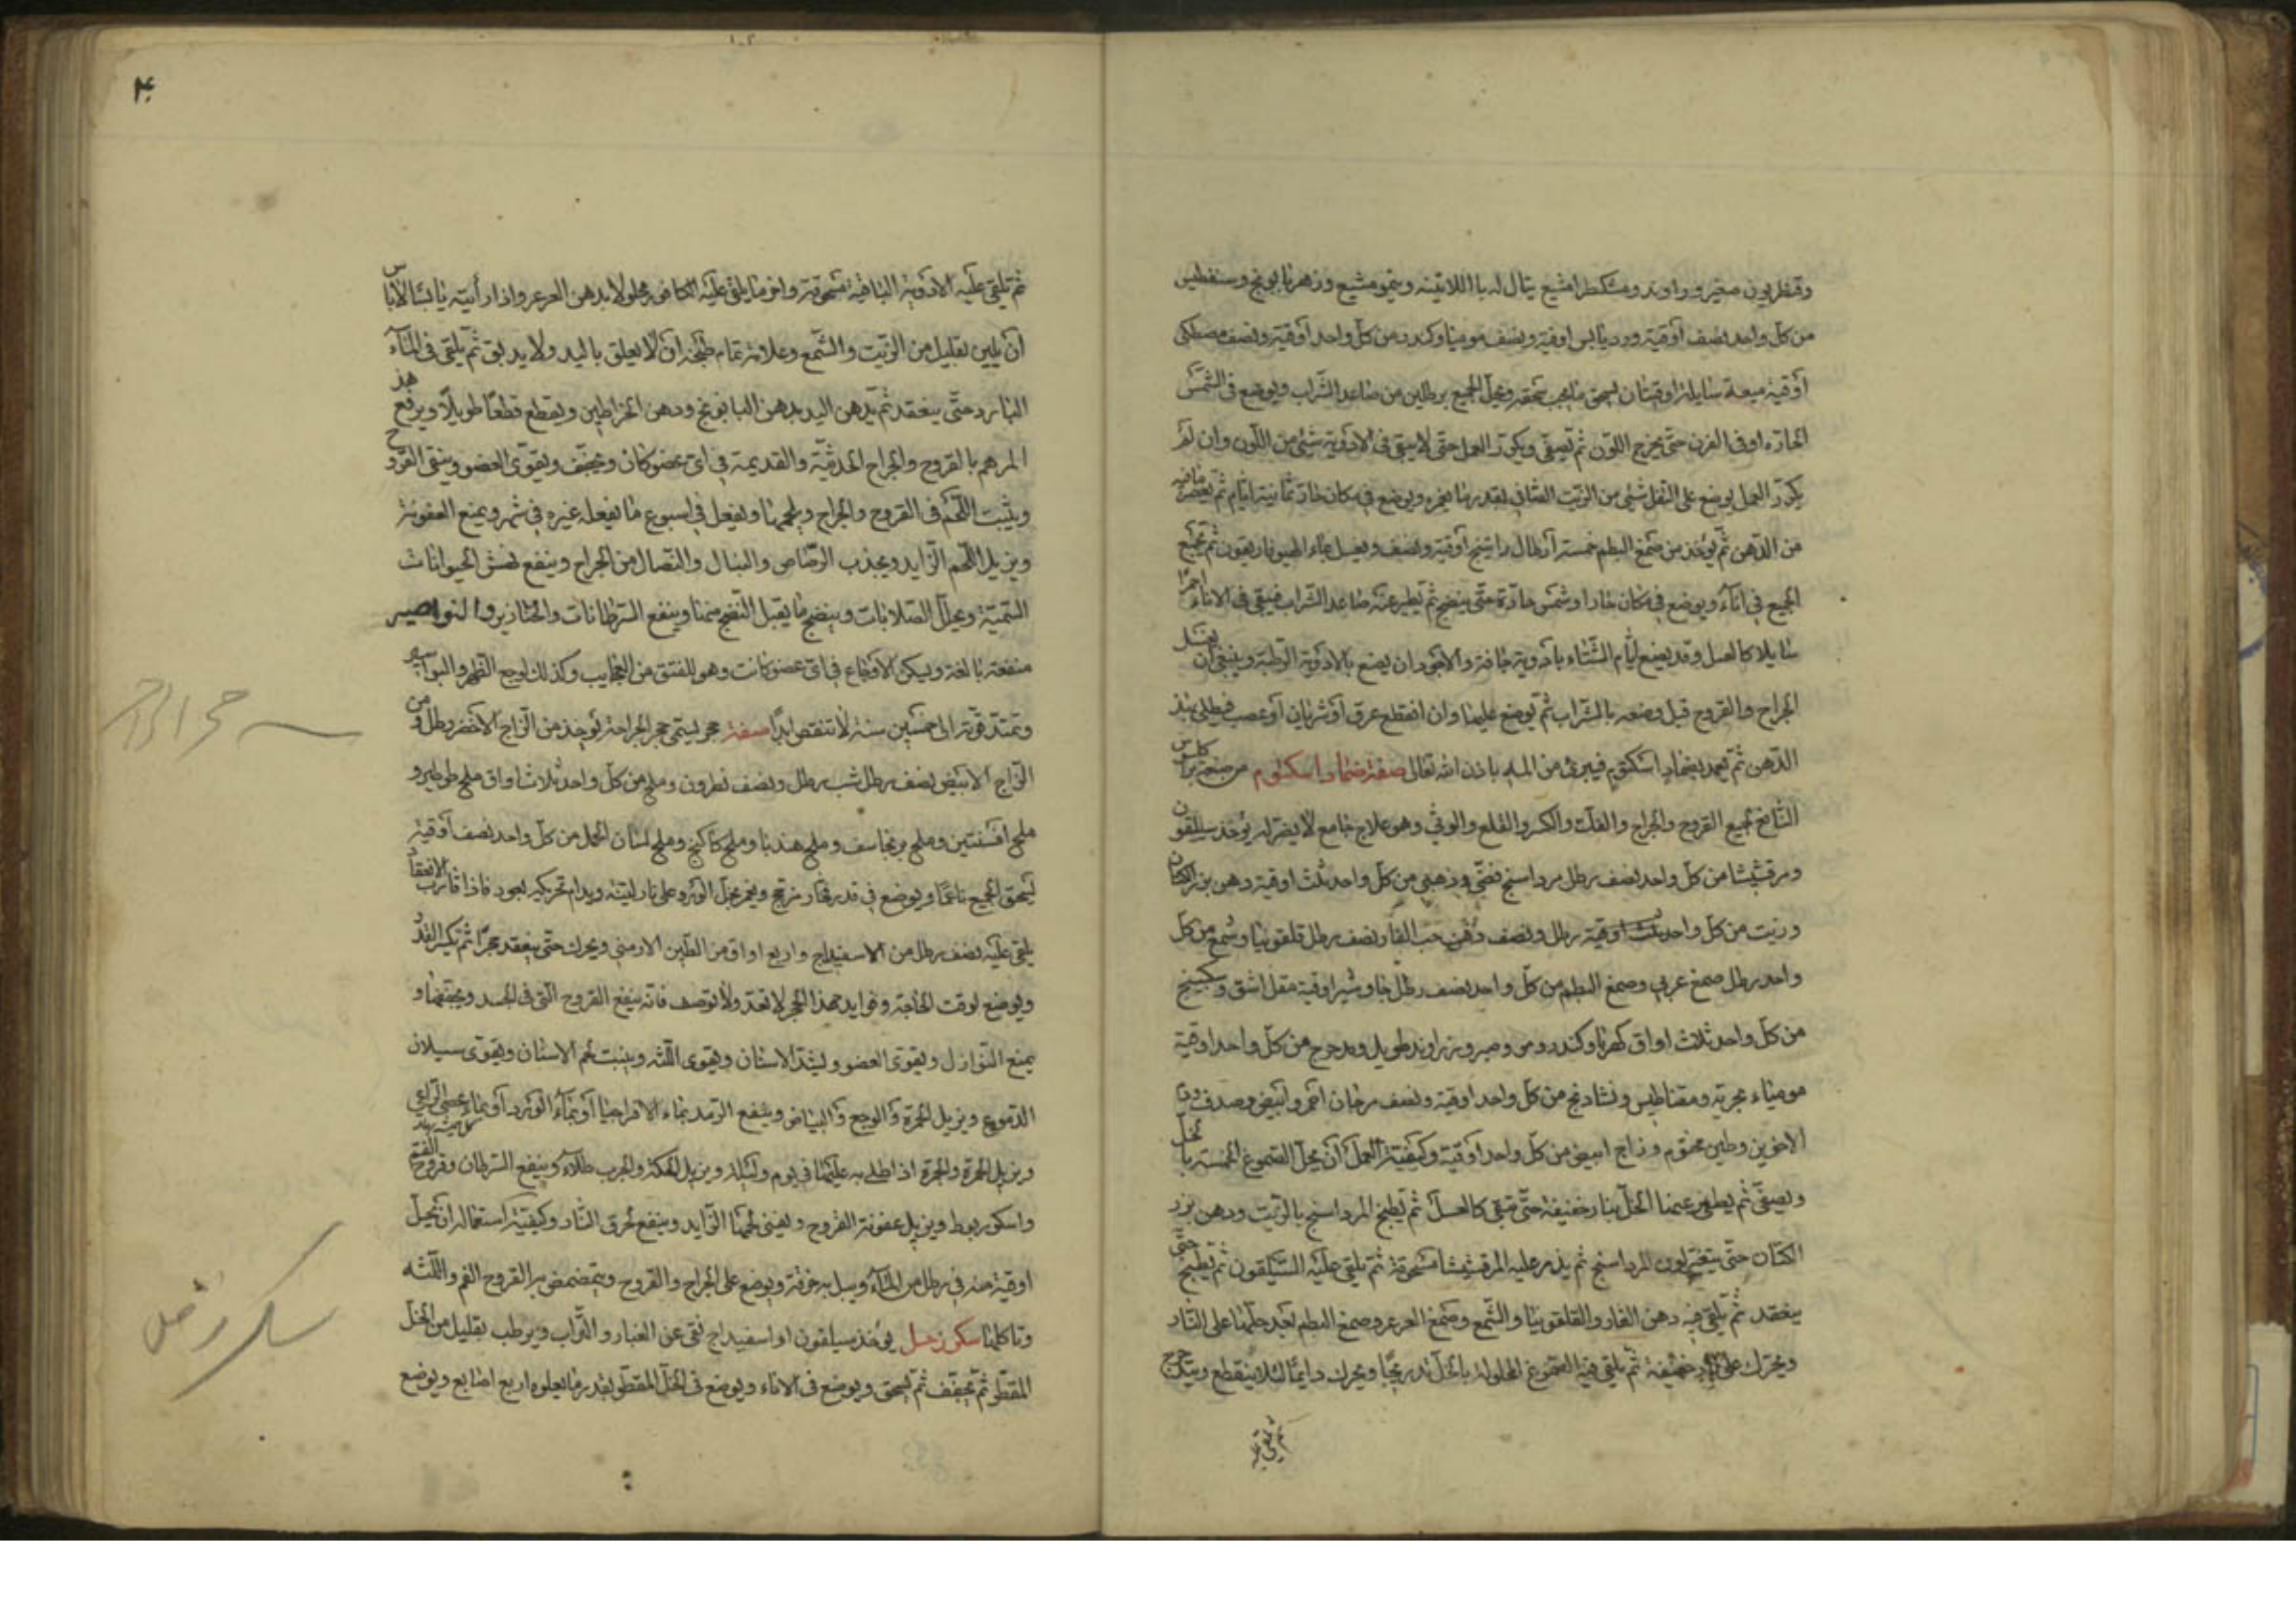 وقنطريون صغير وراوند ومشكطرامشيع يقال له باللاتينه وينمومشيع وزهر بابونج وسنفطين
من كل واحد نصف أوقية وورد يابس اوقية ونصف موميا وكندر من كل واحد أوقية ونصف مصطكى
أوقية ميعة سايلة اوقيتان يسحق ما يجب سحقه ويحل الجميع برطلين من صاعد الشراب ويوضع في الشمس
الحارة او في الفرن حتى يخرج اللون ثم يصفى ويكرر العمل حتى لا يبقى في الادوية شئ من اللون وان لم
يكرر العمل يوضع على الثفل شئ من الزيت الصافي بقدر ما يغمره ويوضع في مكان حار ثمانية ايام ثم يعصر ما فيه
من الدهن ثم يؤخذ من صمغ البطم خمسة أرطال راتينج أوقية ونصف ويغسل بماء الهيوفاريقون ثم يجمع
الجميع في اناء ويوضع في مكان حار او شمس حارة حتى ينضج ثم يطير عنه صاعد الشراب فيبقى في الاناء احمرا
سايلا كالعسل وقد يصنع أيام الشتاء بادوية جافة والاجود ان يصنع بالادوية الرطبة وينبغي أن يغسل
الجراح والقروح قبل وضعه بالشراب ثم يوضع عليها وان انقطع عرق أو شريان أو عصب فيطلى بهذ
الدهن ثم يعمد بضماد اسكتوم فيبرئ من المه باذن الله تعالى صفة ضماد اسكتوم من صنعة براكلس
النافع لجميع القروح والجراح والفك والكسر والقلع والوثي وهو علاج جامع لا يضر له يؤخذ سيلقون
ومرقشيشا من كل واحد نصف رطل مرداسنج فضي وذهبي من كل واحد ثلث اوقية دهن بزر الكتان
وزيت من كل واحد ثلث اوقية رطل ونصف دهن حب الغار نصف رطل قلقونيا وشمع من كل
واحد رطل صمغ عربي وصمغ البطم من كل واحد نصف رطل جاوشير اوقية مقل اشق وسكبينج
من كل واحد ثلاث اواق كهربا وكندر ومر وصبر وزراوند طويل ومدحرج من كل واحد اوقية
مومياء مجربة ومقناطيس وشادنج من كل واحد اوقية ونصف مرجان احمر وابيض وصدف ودم
الاخوين وطين مختوم وزاج ابيض من كل واحد أوقية وكيفية العمل أن يحل الصموغ الخمسة بالخل
ويصفى ثم يطير عنها الخل بنار خفيفة حتى تبقى كالعسل ثم يطبخ المرداسنج بالزيت ودهن بزر
الكتان حتى يتغير لون المرداسنج ثم يذر عليه المرقشيشا مسحوقة ثم يلقى عليه السيلقون ثم يطبخ حتى
ينعقد ثم يلقى فيه دهن الغار والقلقونيا والشمع وصمغ العرعر وصمغ البطم بعد حلها على النار
ويحرك على نار خفيفة ثم يلقى فيه الصموغ المحلولة بالخل تدريجا ويحرك دايما لئلا ينقطع ويتدحرج
ثم يلقى
٤٠
ثم تلقى عليه الادوية الباقية مسحوقة واخر ما يلقى عليه الكافور محلولا بدهن العرعر واذا رأيته يابسا لا باس
أن يلين بقليل من الزيت والشمع وعلامة تمام طبخه ان لا يعلق باليد ولا يدبق ثم يلقى في الماء
البارد حتى ينعقد ثم يدهن اليد بدهن البابونج ودهن الخراطين ويقطع قطعا طويلا ويرفع هذ
المرهم بالقروح والجراح الحديثة والقديمة في اى عضو كان ويجفف ويقوى العضو وينقى القروح
وينبت اللحم في القروح والجراح ويلحمها ويفعل في اسبوع ما يفعله غيره في شهر ويمنع العفونة
ويزيل اللحم الزايد ويجذب الرصاص والنبال والنصال من الجراح وينفع نهش الحيوانات
السمية ويحلل الصلابات وينضج ما يقبل النضج منها وينفع السرطانات والخنازير والنواصير
منفعة بالغة ويسكن الاوجاع في اى عضو كانت وهو للفتق من العجايب وكذلك لوجع الظهر والبواسير
وتمتد قوته الى خمسين سنة لا تنقص ابدا صفة حجر يسمى حجر الجراحة يؤخذ من الزاج الاخضر رطل ومن
الزاج الابيض نصف رطل شب رطل ونصف نطرون وملح من كل واحد ثلاث اواق ملح طرطير و
ملح افسنتين وملح برنجاسف وملح هندبا وملح كاكنج وملح لسان الحمل من كل واحد نصف أوقية
يسحق الجميع ناعما ويوضع في قدر فخار مزجج ويغمر بخل الورد على نار لينة ويدام تحريكه بعود فاذا قارب الانعقاد
يلقى عليه نصف رطل من الاسفيداج واربع اواق من الطين الارمني ويحرك حتى ينعقد حجرا ثم يكسر القدر
ويوضع لوقت الحاجة وفوايد هذا الحجر لا تعد ولا توصف فانه ينفع القروح التي في الجسد ويجففها و
يمنع النوازل ويقوى العضو ويشد الاسنان ويقوى اللثه وينبت لحم الاسنان ويقوى سيلان
الدموع ويزيل الحمرة والوجع والبياض وينفع الرمد بماء الافراجيا أو بماء الورد أو بماء عصى الراعي
ويزيل الحمرة والجمرة اذا طلى به عليها في يوم وليلة ويزيل الحكة والجرب طلاء وينفع السرطان وقروح الفم
واسكوربوط ويزيل عفونة القروح ويفنى لحمها الزايد وينفع لحرق النار وكيفية استعماله ان يحل
اوقية منه في رطل من الماء ويبل به خرقة ويوضع على الجراح والقروح ويتمضمض به القروح الفم واللثه
وتاكلها سكر زحل يؤخذ سيلقون او اسفيداج نقى عن الغبار والتراب ويرطب بقليل من الخل
المقطر ثم يجفف ثم يسحق ويوضع في الاناء ويوضع فى الخل المقطر بقدر ما يعلوه اربع اصابع ويوضع
سكر زحل